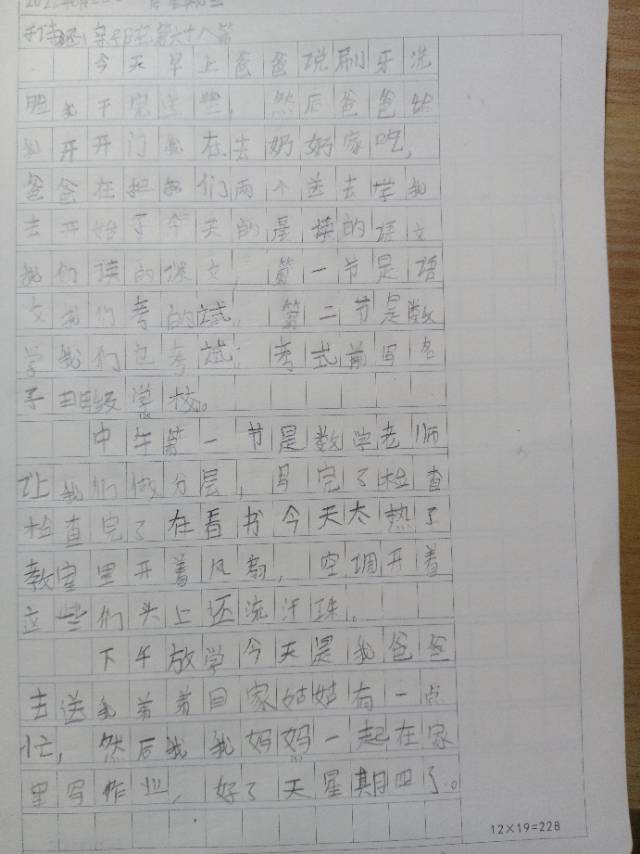 今天早上爸爸说刷牙洗
我干完这些,然后爸爸
我开开门我在去奶奶家吃,
爸爸在把我们两个送去学我
去开始了今天的是读的语文
我们读的课文,第一节是语
文我们考的试。第二节是数
学我们也考试:考式前写名
子班级学校。
中午第一节是数学老师
让我们做分层,写完了检查
检查完了在看书今天太热了
教室里开着风扇,空调开着
这些们头上还流汗珠。
下午放学今天是我爸爸
去送我弟弟回家姑姑有一点
忙,然后我我妈妈一起在家
里写作业,好了天星期四了。
12×19=228